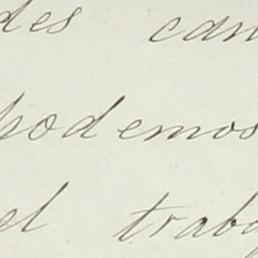 des can
podemos
el traba